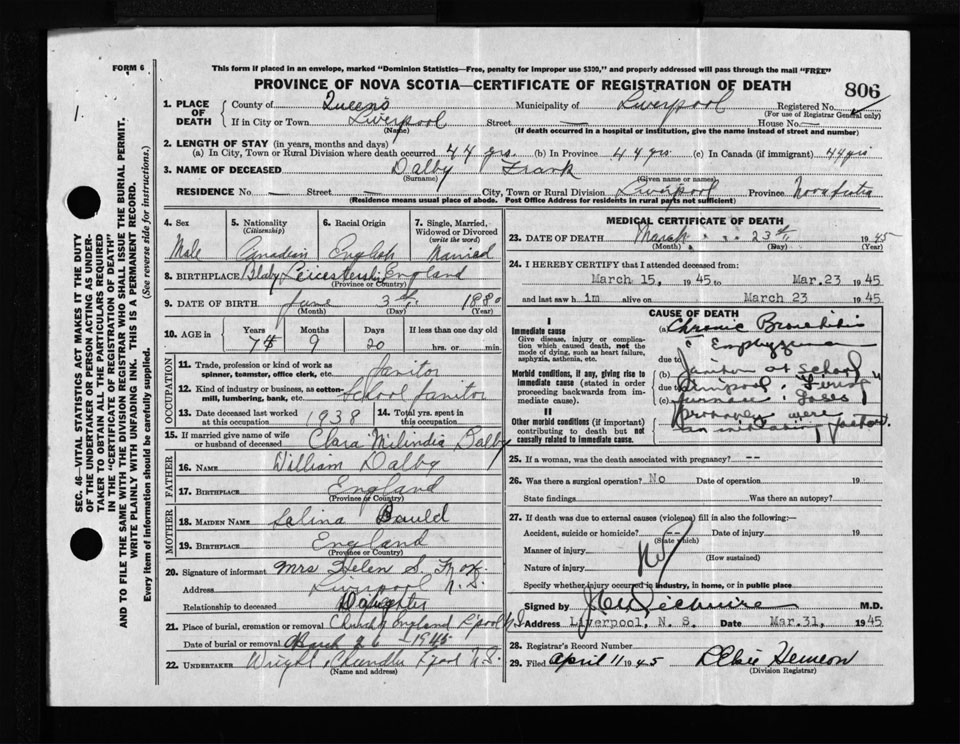 FORM 6
This form if placed in an envelope, marked "Dominion Statistics—Free, penalty for improper use $300," and properly addressed will pass through the mail "FREE"
PROVINCE OF NOVA SCOTIA—CERTIFICATE OF REGISTRATION OF DEATH
806
1.
1. PLACE OF DEATH
County of Queens Municipality of Liverpool Registered No.
(For use of Registrar General only)
If in City or Town Liverpool Street — House No. —
(Name) (If death occurred in a hospital or institution, give the name instead of street and number)
2. LENGTH OF STAY (in years, months and days)
(a) In City, Town or Rural Division where death occurred 44 yrs. (b) In Province 44 yrs (c) In Canada (if immigrant) 44 yrs
3. NAME OF DECEASED Dalby Frank
(Surname) (Given name or names)
RESIDENCE No. — Street — City, Town or Rural Division Liverpool Province Nova Scotia
(Residence means usual place of abode. Post Office Address for residents in rural parts not sufficient)
4. Sex
Male
5. Nationality
(Citizenship)
Canadian
6. Racial Origin
English
7. Single, Married, Widowed or Divorced
(write the word)
Married
8. BIRTHPLACE Blaby Leicestershi England
(Province or Country)
9. DATE OF BIRTH June 3rd 1880
(Month) (Day) (Year)
10. AGE in
Years Months Days If less than one day old
9 20 hrs. or min.
OCCUPATION
11. Trade, profession or kind of work as spinner, teamster, office clerk, etc. Janitor
12. Kind of industry or business, as cotton-mill, lumbering, bank, etc. School Janitor
13. Date deceased last worked at this occupation 1938
14. Total yrs. spent in this occupation
15. If married give name of wife or husband of deceased Clara Milindia Dalby
FATHER
16. NAME William Dalby
17. BIRTHPLACE England
(Province or Country)
MOTHER
18. MAIDEN NAME Salina Bauld
19. BIRTHPLACE England
(Province or Country)
20. Signature of informant Mrs Helen S.
Address Liverpool N.S.
Relationship to deceased Daughter
21. Place of burial, cremation or removal Church of England L'pool NS
Date of burial or removal March 26 1945
22. UNDERTAKER Wright, Chandler L'pool N.S.
(Name and address)
MEDICAL CERTIFICATE OF DEATH
23. DATE OF DEATH March 23rd 1945
(Month) (Day) (Year)
24. I HEREBY CERTIFY that I attended deceased from:
March 15, 1945 to Mar.23 1945
and last saw h im alive on March 23 1945
CAUSE OF DEATH
I
Immediate cause
Give disease, injury or complication which caused death, not the mode of dying, such as heart failure, asphyxia, asthenia, etc.
(a) Chronic Bronchitis
c Emphyzema
due to
Morbid conditions, if any, giving rise to immediate cause (stated in order proceeding backwards from immediate cause).
(b) Janitor at School
due to Liverpool. Firing
(c) furnace. Gases
II
Other morbid conditions (if important) contributing to death but not causally related to immediate cause.
probably were
an initiating factor.
25. If a woman, was the death associated with pregnancy? --
26. Was there a surgical operation? No Date of operation 19
State findings Was there an autopsy?
27. If death was due to external causes (violence) fill in also the following:—
Accident, suicide or homicide? -- Date of injury 19
(State which)
Manner of injury
(How sustained)
Nature of injury
Specify whether injury occurred in industry, in home, or in public place
Signed by M.D.
Address Liverpool, N. S. Date Mar.31, 1945
28. Registrar's Record Number
29. Filed April 11 1945 Hemeon
(Division Registrar)
SEC. 46—VITAL STATISTICS ACT MAKES IT THE DUTY
OF THE UNDERTAKER OR PERSON ACTING AS UNDER-
TAKER TO OBTAIN ALL THE PARTICULARS REQUIRED
IN THE "CERTIFICATE OF REGISTRATION OF DEATH"
AND TO FILE THE SAME WITH THE DIVISION REGISTRAR WHO SHALL ISSUE THE BURIAL PERMIT.
WRITE PLAINLY WITH UNFADING INK. THIS IS A PERMANENT RECORD.
Every item of information should be carefully supplied. (See reverse side for instructions.)